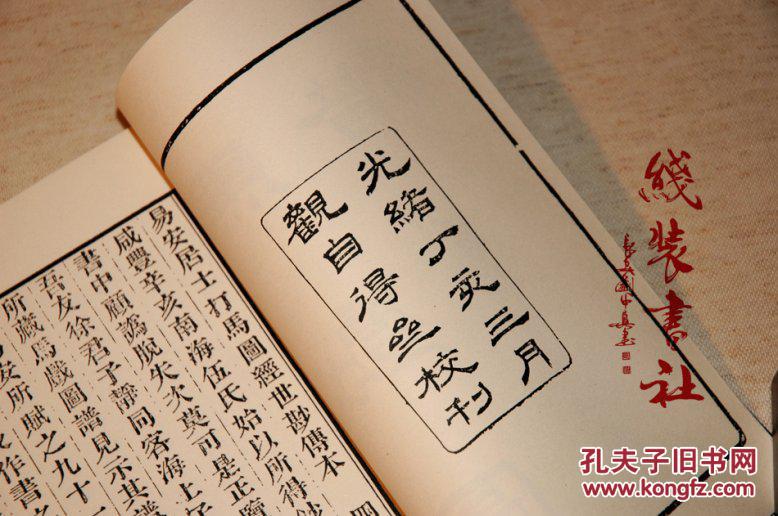 光緒丁亥三月
觀自得齋校刊
易安居士打馬圖經世尠傳本
咸豐辛亥南海伍氏始以所得鈔
書中顧譌脫失次莫可是正覽
吾友徐君子靜同客海上
所藏馬戲圖譜見示其
安所賦之九十一
作書
綫裝書社
孔夫子旧书网
www.kongfz.com